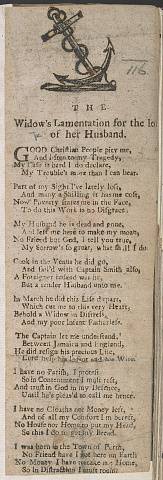 116
THE
Widow's Lamentation for the lo
of her Husband.
GOOD Christian People pity me,
And listen to my Tragedy,
My Case is hard I do declare,
My Trouble's more than I can bear.
Part of my Sight I've lately lost,
And many a Shilling it me cost,
Now Poverty stares me in the Face,
To do this Work is no Disgrace.
My Husband he is dead and gone,
And left me here to make my moan,
No Friend but God, I tell you true,
My Sorrow's so great, what shall I do
Cook in the he did go,
And sail'd with Captain Smith also,
A Foreigner indeed was he,
But a tender Husband unto me.
In March he did this Life depart,
Which cut me to the very Heart,
Behold a Widow in Distress,
And my poor Infant Fatherless.
The Captain let me understand,
Between Jamaica and England,
He did resign his precious Life,
Lord help his Infant and his Wife.
I have no Parish, I protest
So in Contentment I must rest,
And trust in God in my Distress,
Until he's pleas'd to call me hence.
I have no Cloaths nor Money left,
And of all my Comfort I'm bereft,
No House nor Home to put my Head,
So this I do to get my Bread.
I was born in the Town of Perth,
No Friend have I got here on Earth
No Money I have to take me Home,
So in Distraction I must roam